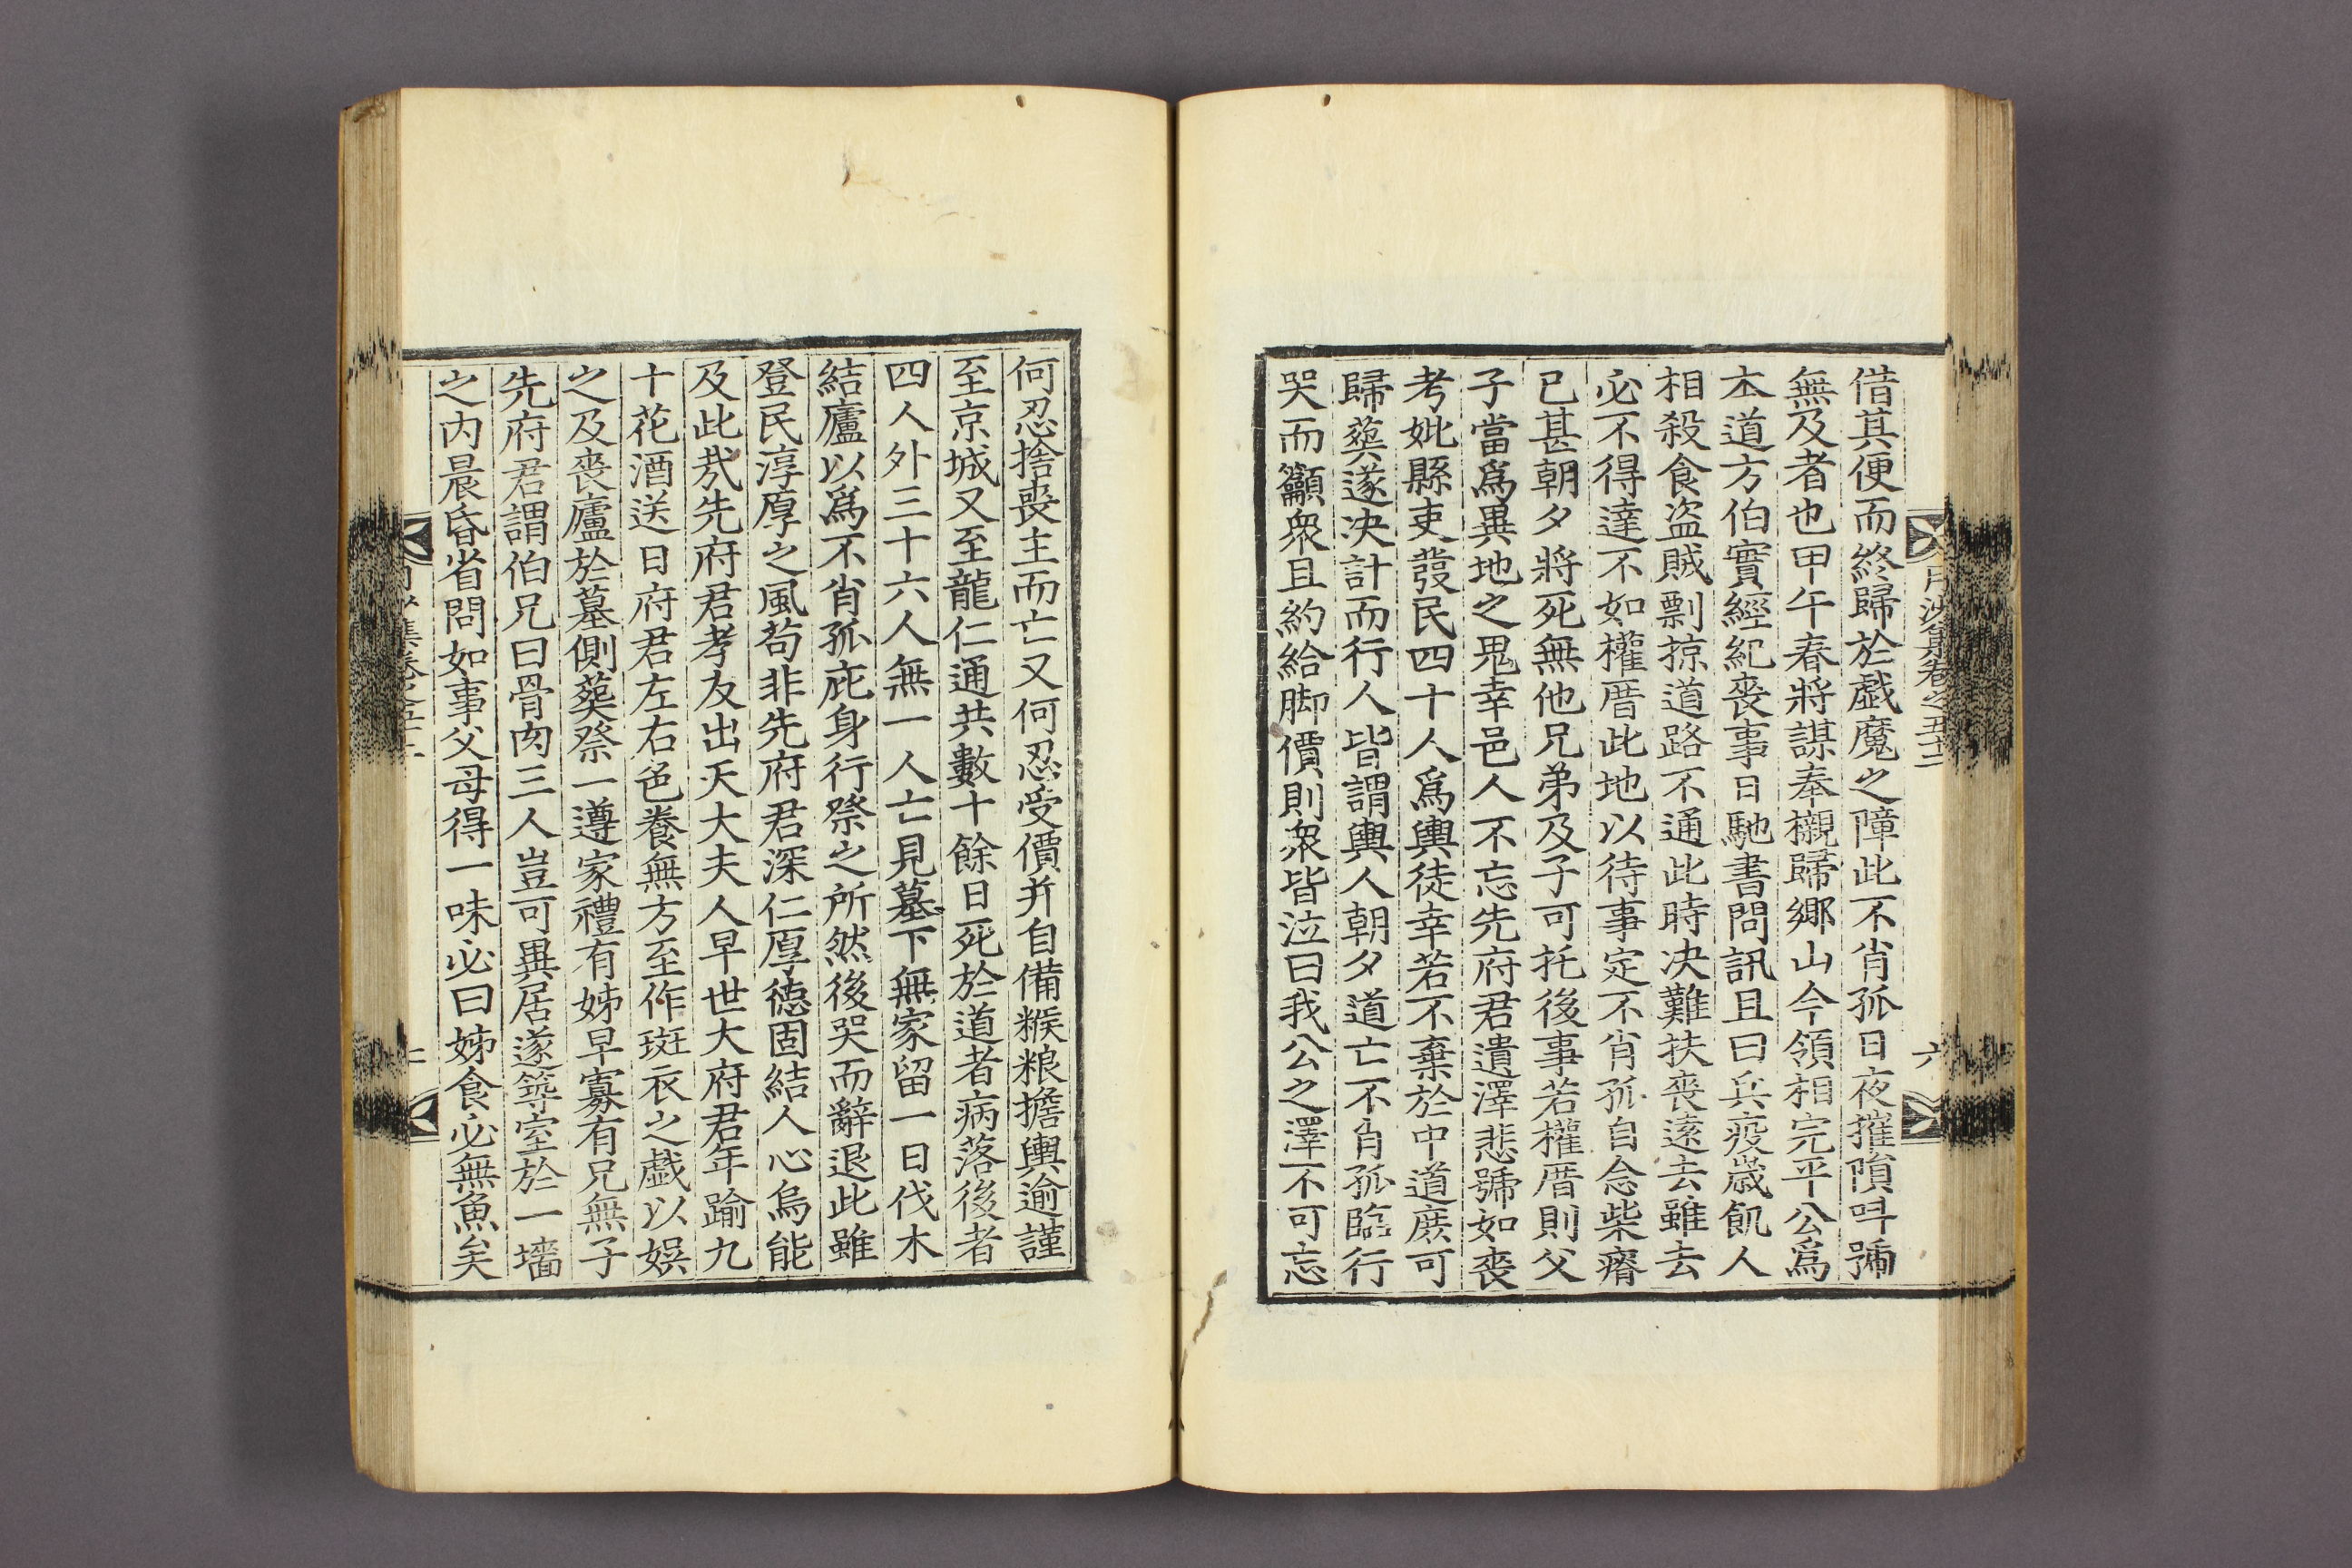 月沙集卷之五十二
六
借其便而終歸於戱魔之障此不肖孤日夜摧隕呌號
無及者也甲午春將謀奉櫬歸鄕山今領相完平公爲
本道方伯實經紀喪事日馳書問訊且曰兵疫歲飢人
相殺食盜賊剽掠道路不通此時决難扶喪遠去雖去
必不得達不如權厝此地以待事定不肖孤自念柴瘠
已甚朝夕將死無他兄弟及子可托後事若權厝則父
子當爲異地之鬼幸邑人不忘先府君遺澤悲號如喪
考妣縣吏發民四十人爲輿徒幸若不棄於中道庶可
歸葬遂决計而行人皆謂輿人朝夕道亡不肖孤臨行
哭而籲衆且約給脚價則衆皆泣曰我公之澤不可忘
何忍捨喪主而亡又何忍受價幷自備糇粮擔輿逾謹
至京城又至龍仁通共數十餘日死於道者病落後者
四人外三十六人無一人亡見墓下無家留一日伐木
結廬以爲不肖孤庇身行祭之所然後哭而辭退此雖
登民淳厚之風苟非先府君深仁厚德固結人心烏能
及此㢤先府君孝友出天大夫人早世大府君年踰九
十花酒送日府君左右色養無方至作斑衣之戱以娛
之及喪廬於墓側葬祭一遵家禮有姊早寡有兄無子
先府君謂伯兄曰骨肉三人豈可異居遂築室於一墻
之内晨昏省問如事父母得一味必曰姊食必無魚矣